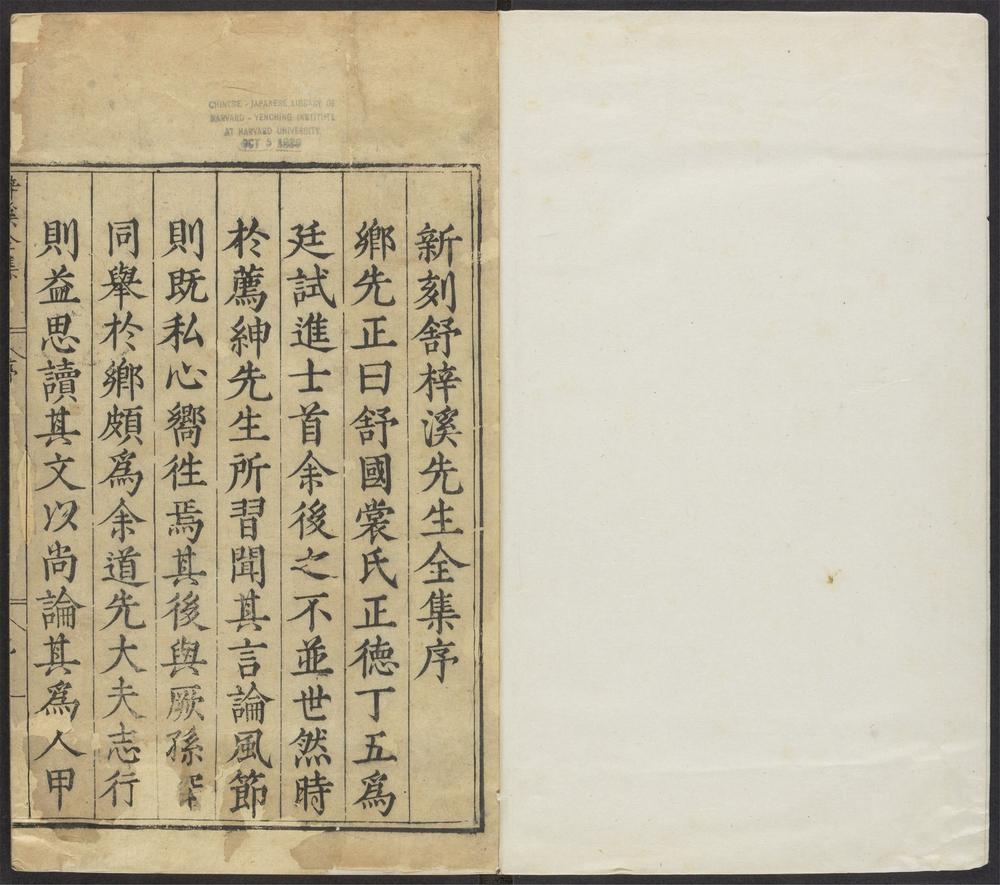 CHINESE - JAPANESE LIBRARY OF
HARVARD - YENCHING INSTITUTE
AT HARVARD UNIVERSITY
OCT 5 1939
新刻舒梓溪先生全集序
鄉先正曰舒國裳氏正德丁丑爲
廷試進士首余後之不並世然時
於薦紳先生所習聞其言論風節
則既私心嚮徃焉其後與厥孫
同舉於鄉頗爲余道先大夫志行
則益思讀其文以尚論其爲人甲
梓溪全集
序